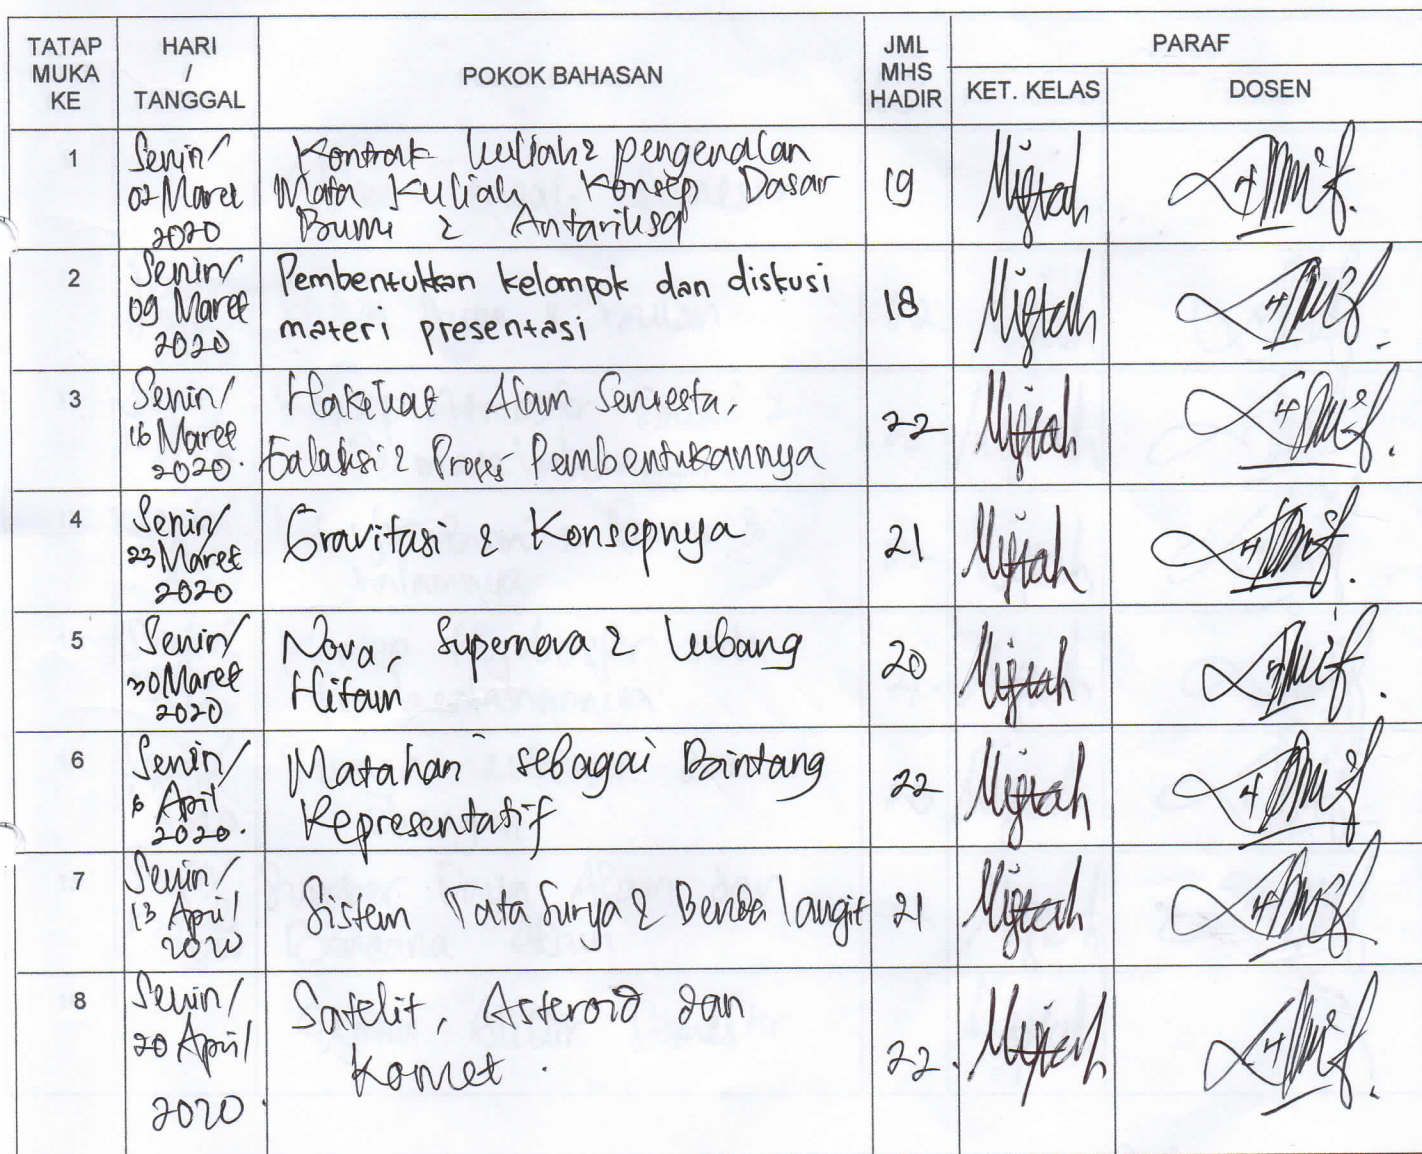 TATAP MUKA KE
HARI / TANGGAL
POKOK BAHASAN
JML MHS HADIR
PARAF
KET. KELAS
DOSEN
1
Senin/
02 Maret
2020
Kontrak kuliah & pengenalan
Mata Kuliah Konsep Dasar
Bumi & Antariksa
19
Miftah
2
Senin/
09 Maret
2020
Pembentukkan kelompok dan diskusi
materi presentasi
18
Miftah
3
Senin/
16 Maret
2020.
Hakikat Alam Semesta,
Galaksi & Proses Pembentukannya
22
Miftah
4
Senin/
23 Maret
2020
Gravitasi & Konsepnya
21
Miftah
5
Senin/
30 Maret
2020
Nova, Supernova & Lubang
Hitam
20
Miftah
6
Senin/
6 April
2020.
Matahari sebagai Bintang
Representatif
22
Miftah
7
Senin/
13 April
2020
Sistem Tata Surya & Benda langit
21
Miftah
8
Senin/
20 April
2020.
Satelit, Asteroid dan
Komet.
22.
Miftah